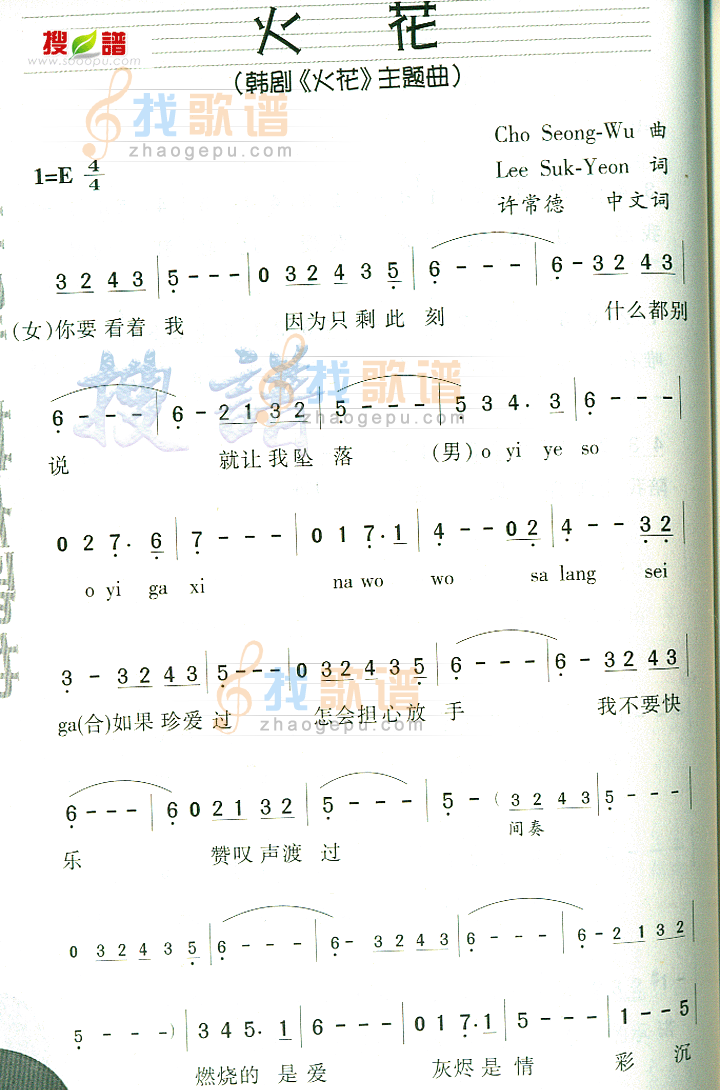 搜谱
www.sooopu.com
火 花
(韩剧《火花》主题曲)
找歌谱
zhaogepu.com
Cho Seong-Wu 曲
1=E 4/4
Lee Suk-Yeon 词
许常德 中文词
3 2 4 3 | 5 - - - | 0 3 2 4 3 5 | 6 - - - | 6 - 3 2 4 3
(女)你要 看着 我 因为只 剩 此 刻 什么都别
搜谱
找歌谱
zhaogepu.com
6 - - - | 6 - 2 1 3 2 | 5 - - - | 5 3 4 . 3 | 6 - - - |
说 就让 我 坠 落 (男) o yi ye so
0 2 7 . 6 | 7 - - - | 0 1 7 . 1 | 4 - - 0 2 | 4 - - 3 2
o yi ga xi na wo wo sa lang sei
3 - 3 2 4 3 | 5 - - - | 0 3 2 4 3 5 | 6 - - - | 6 - 3 2 4 3
找歌谱
zhaogepu.com
ga(合)如果 珍爱 过 怎会担心 放 手 我不要快
6 - - - | 6 0 2 1 3 2 | 5 - - - | 5 - ( 3 2 4 3 | 5 - - -
间奏
乐 赞叹 声渡 过
0 3 2 4 3 5 | 6 - - - | 6 - 3 2 4 3 | 6 - - - | 6 - 2 1 3 2
找歌谱
zhaogepu.com
5 - - ) | 3 4 5 . 1 | 6 - - - | 0 1 7 . 1 | 5 - - - | 1 - - 5
燃烧的 是 爱 灰烬 是 情 彩 沉